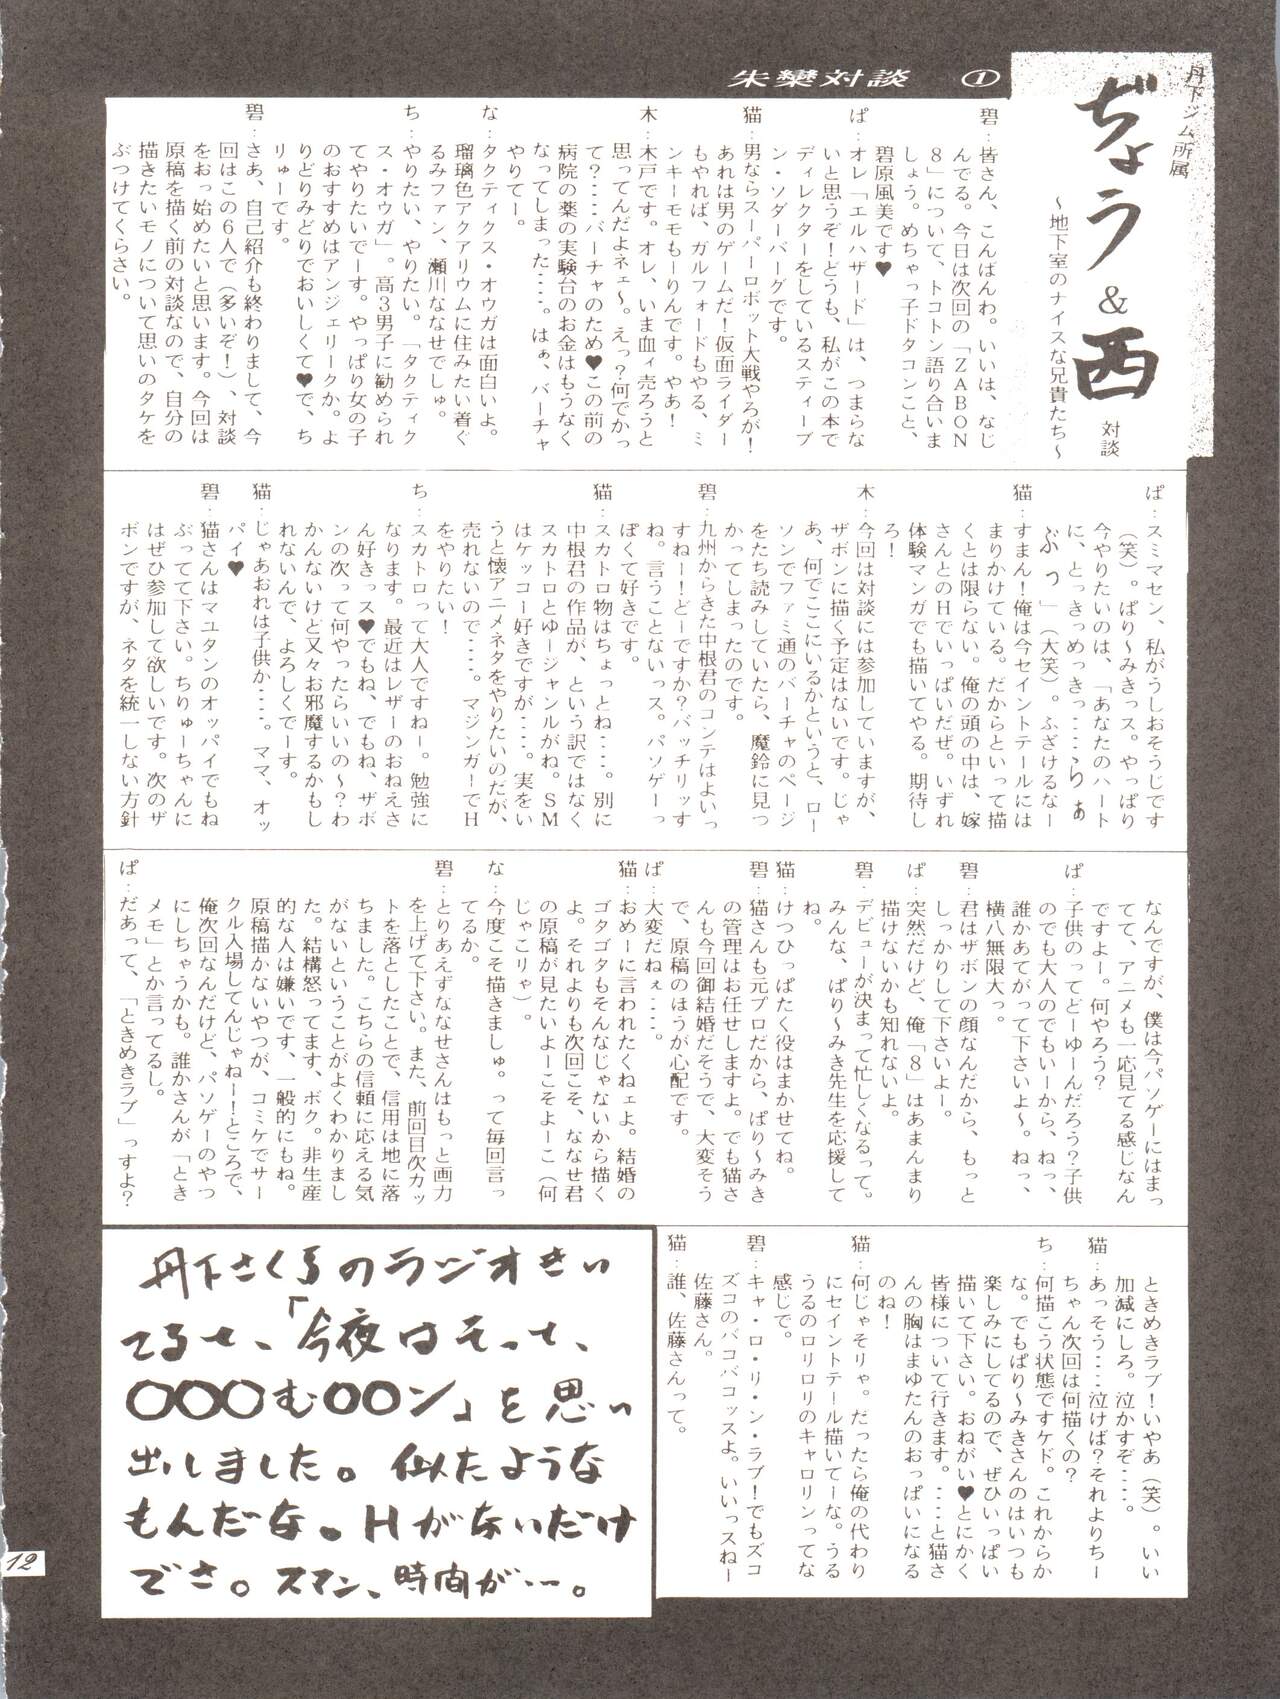 朱欒対談 ①
丹下ジム所属
ぢょう&西
対談
~地下室のナイスな兄貴たち~
碧:皆さん、こんばんわ。いいは、なじ
んでる。今日は次回の「ZABON
8」について、トコトン語り合いま
しょう。めちゃっ子ドタコンこと、
碧原風美です♥
ぱ:オレ「エルハザード」は、つまらな
いと思うぞ!どうも、私がこの本で
ディレクターをしているスティーブ
ン・ソダーバーグです。
猫:男ならスーパーロボット大戦やろが!
あれは男のゲームだ!仮面ライダー
もやれば、ガルフォードもやる、ミ
ンキーモモもーりんです。やあ!
木:木戸です。オレ、いま血ィ売ろうと
思ってんだよネェ~。えっ?何でかっ
て?・・・・バーチャのため♥この前の
病院の薬の実験台のお金はもうなく
なってしまった・・・・。はぁ、バーチャ
やりてー。
な:タクティクス・オウガは面白いよ。
瑠璃色アクアリウムに住みたい着ぐ
るみファン、瀬川ななせでしゅ。
ち:やりたい、やりたい。「タクティク
ス・オウガ」。高3男子に勧められ
てやりたいでーす。やっぱり女の子
のおすすめはアンジェリークか。よ
りどりみどりでおいしくて♥で、ち
りゅーです。
碧:さあ、自己紹介も終わりまして、今
回はこの6人で(多いぞ!)、対談
をおっ始めたいと思います。今回は
原稿を描く前の対談なので、自分の
描きたいモノについて思いのタケを
ぶつけてくらさい。
ぱ:スミマセン、私がうしおそうじです
(笑)。ぱり~みきっス。やっぱり
今やりたいのは、「あなたのハート
に、とっきっめっきっ・・・・らぁ
ぶっ」(大笑)。ふざけるなー
猫:すまん!俺は今セイントテールには
まりかけている。だからといって描
くとは限らない。俺の頭の中は、嫁
さんとのHでいっぱいだぜ。いずれ
体験マンガでも描いてやる。期待し
ろ!
木:今回は対談には参加していますが、
ザボンに描く予定はないです。じゃ
あ、何でここにいるかというと、ロー
ソンでファミ通のバーチャのページ
をたち読みしていたら、魔鈴に見つ
かってしまったのです。
碧:九州からきた中根君のコンテはよいっ
すねー!どーですか?バッチリッす
ね。言うことないっス。パソゲーっ
ぽくて好きです。
猫:スカトロ物はちょっとね・・・・。別に
中根君の作品が、という訳ではなく
スカトロとゆージャンルがね。SM
はケッコー好きですが・・・・。実をい
うと懐アニメネタをやりたいのだが、
売れないので・・・・。マジンガーでH
をやりたい!
ち:スカトロって大人ですねー。勉強に
なります。最近はレザーのおねえさ
ん好きっス♥でもね、でもね、ザボ
ンの次って何やったらいいの~?わ
かんないけど又々お邪魔するかもし
れないんで、よろしくでーす。
猫:じゃあおれは子供か・・・・。ママ、オッ
パイ♥
碧:猫さんはマユタンのオッパイでもね
ぶってて下さい。ちりゅーちゃんに
はぜひ参加して欲しいです。次のザ
ボンですが、ネタを統一しない方針
なんですが、僕は今パソゲーにはまっ
てて、アニメも一応見てる感じなん
ですよー。何やろう?
ぱ:子供のってどーゆーんだろう?子供
のでも大人のでもいーから、ねっ、
誰かあてがって下さいよ~。ねっ、
横八無限大っ。
碧:君はザボンの顔なんだから、もっと
しっかりして下さいよー。
ぱ:突然だけど、俺「8」はあまんまり
描けないかも知れないよ。
碧:デビューが決まって忙しくなるって。
みんな、ぱり~みき先生を応援して
ね。
猫:けつひっぱたく役はまかせてね。
碧:猫さんも元プロだから、ぱり~みき
の管理はお任せしますよ。でも猫さ
んも今回御結婚だそうで、大変そう
で、原稿のほうが心配です。
ぱ:大変だねぇ・・・・。
猫:おめーに言われたくねェよ。結婚の
ゴタゴタもそんなじゃないから描く
よ。それよりも次回こそ、ななせ君
の原稿が見たいよーこそよーこ(何
じゃこりゃ)。
な:今度こそ描きましゅ。って毎回言っ
てるか。
碧:とりあえずななせさんはもっと画力
を上げて下さい。また、前回目次カッ
トを落としたことで、信用は地に落
ちました。こちらの信頼に応える気
がないということがよくわかりまし
た。結構怒ってます、ボク。非生産
的な人は嫌いです、一般的にもね。
原稿描かないやつが、コミケでサー
クル入場してんじゃねー!ところで、
俺次回なんだけど、パソゲーのやつ
にしちゃうかも。誰かさんが「とき
メモ」とか言ってるし。
ぱ:だあって、「ときめきラブ」っすよ?
ときめきラブ!いやあ(笑)。いい
加減にしろ。泣かすぞ・・・・。
猫:あっそう・・・・泣けば?それよりちー
ちゃん次回は何描くの?
ち:何描こう状態ですケド。これからか
な。でもぱり~みきさんのはいつも
楽しみにしてるので、ぜひいっぱい
描いて下さい。おねがい♥とにかく
皆様について行きます。・・・・と猫さ
んの胸はまゆたんのおっぱいになる
のね!
猫:何じゃそりゃ。だったら俺の代わり
にセイントテール描いてーな。うる
うるのロリロリのキャロリンってな
感じで。
碧:キャ・ロ・リ・ン・ラブ!でもズコ
ズコのバコバコッスよ。いいっスねー
佐藤さん。
猫:誰、佐藤さんって。
丹下さくらのラジオきい
てるせ、「今夜はそっと、
〇〇〇む〇〇ン」を思い
出しました。似たような
もんだな。Hがないだけ
でさ。スマン、時間が・・・。
12